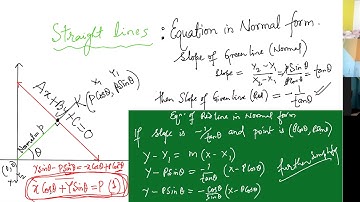 Straight lines : Equation in Normal form.
Slope of Green line (Normal)
Slope = Y₂-Y₁ / X₂-X₁ = pSinθ / pCosθ = tanθ
then Slope of Given line (Red) = -1/tanθ
X₁ Y₁
K(PCosθ, PSinθ)
Ax+By+C=0
Normal=P
θ
(0,0)
YSinθ - PSin²θ = -xCosθ + PCos²θ
xCosθ + YSinθ = P (1)
Eqn of Red line in Normal form
If slope is -1/tanθ and point is (PCosθ, PSinθ)
Y-Y₁ = m(x-x₁)
Y-PSinθ = -1/tanθ (x-PCosθ)
Y-PSinθ = -Cosθ/Sinθ (x-PCosθ)
further simplify